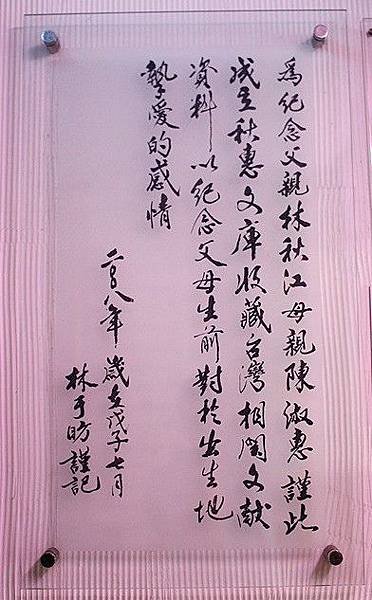 為紀念父親林秋江母親陳淑惠謹此
成立秋惠文庫收藏台灣相關文獻
資料以紀念父母生前對於出生地
摯愛的感情
二〇〇八年歲在戊子七月
林于昉謹記